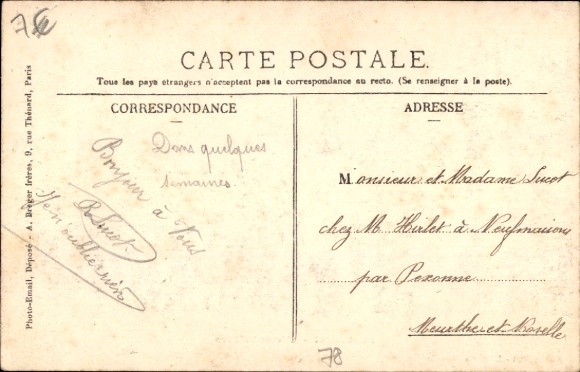 7€
CARTE POSTALE.
Tous les pays étrangers n'acceptent pas la correspondance au recto. (Se renseigner à la poste).
CORRESPONDANCE
Dans quelques
semaines.
Bonjour à Vous
Sucot.
ADRESSE
Monsieur et Madame Sucot
chez M. Hirlet à Neufmaisons
par Pexonne
Meurthe et Moselle
Photo-Email, Déposé - A. Breger frères, 9, rue Thénard, Paris
78